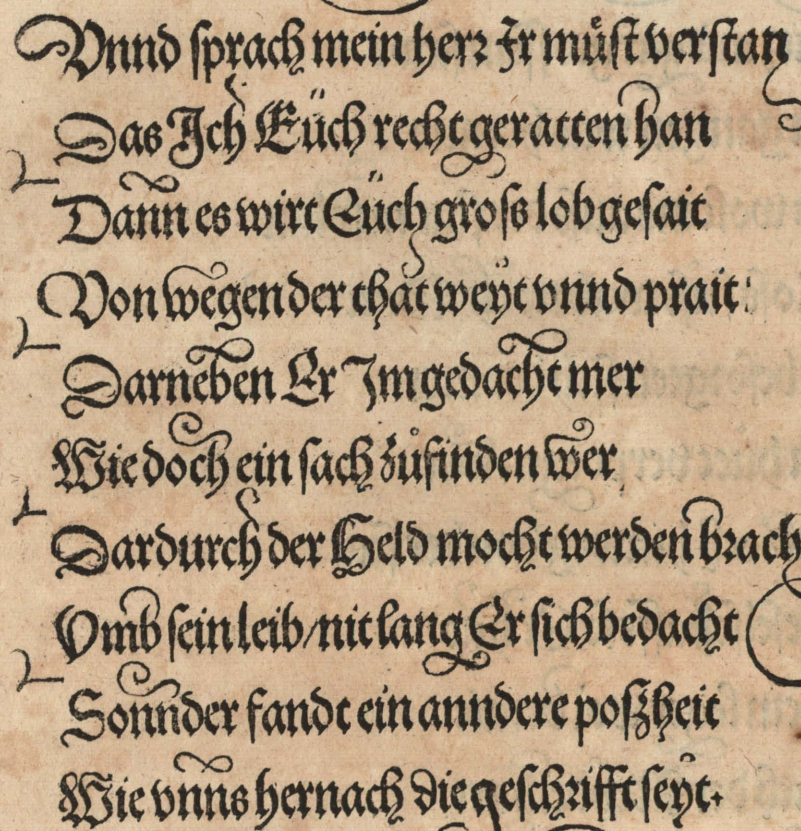 Vnnd sprach mein herr Ir müst verstan
Das Ich Eüch recht geratten han
Dann es wirt Eüch gross lob gesait
Von wegen der that weyt vnnd prait:
Darneben Er Im gedacht mer
Wie doch ein sach zůfinden wer
Dardurch der Held mocht werden brach
Vmb sein leib/nit lang Er sich bedacht
Sonnder fandt ein anndere poßheit
Wie vnns hernach die geschrifft seyt.